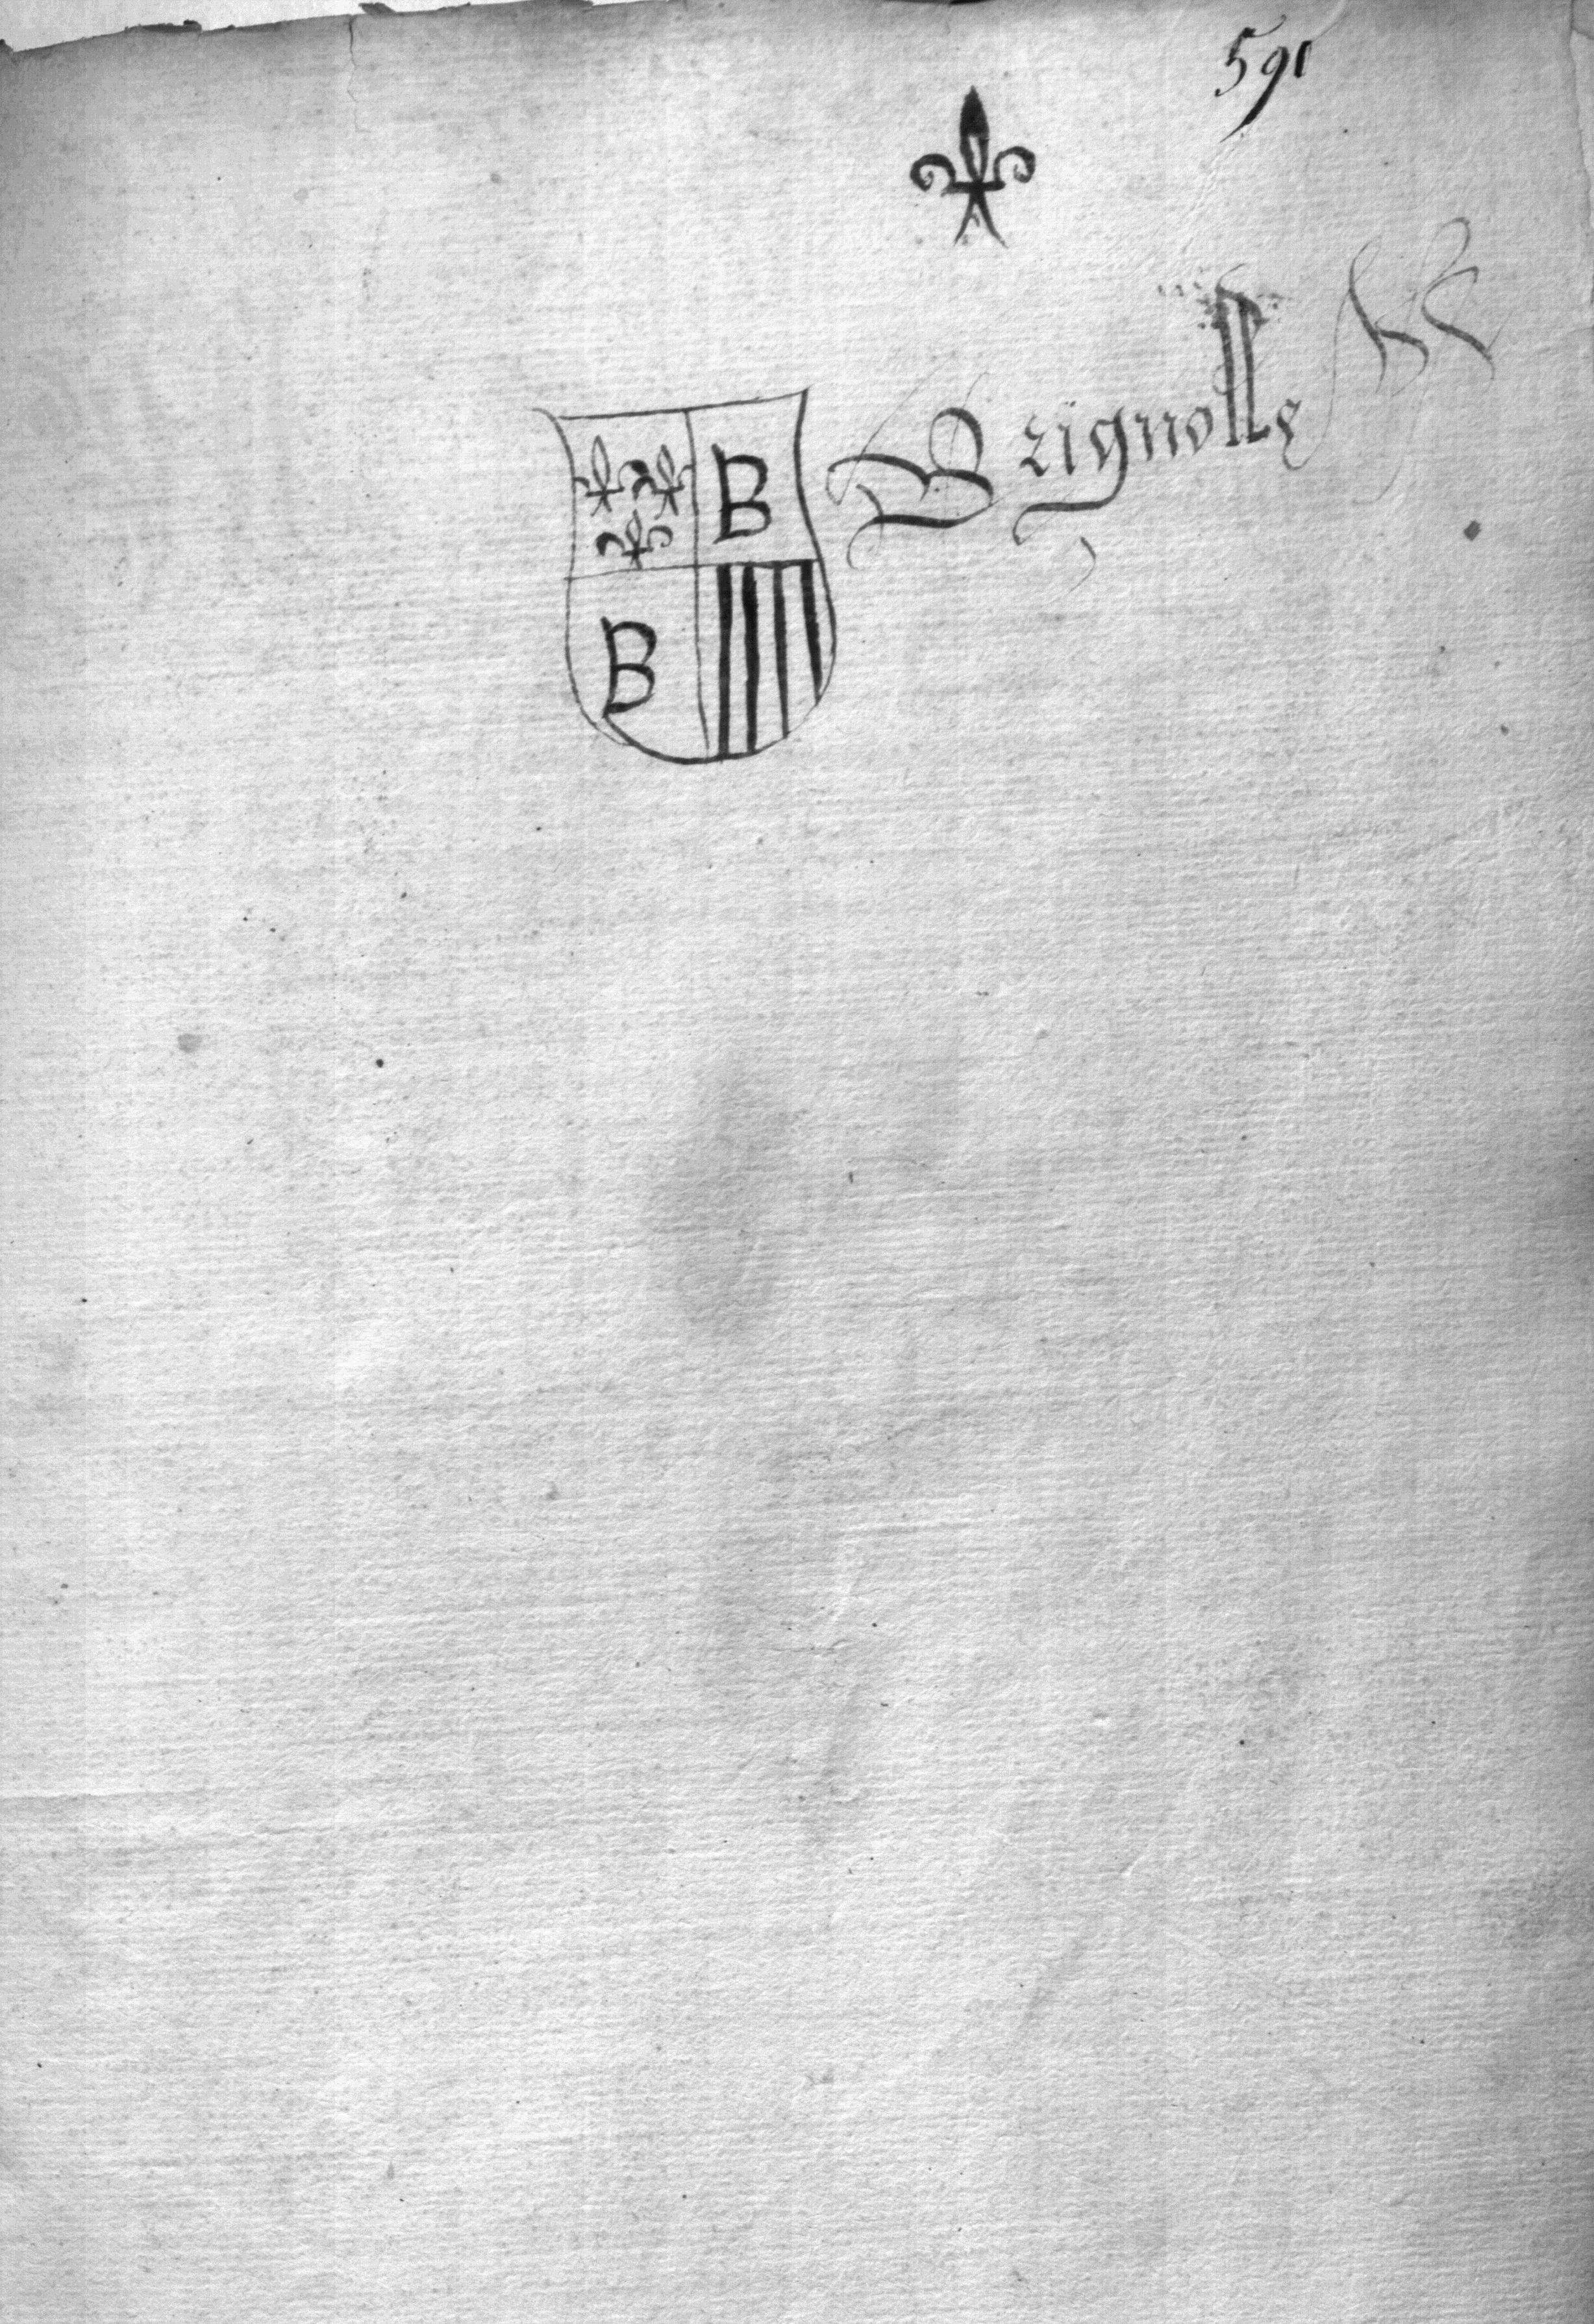 591
B
Brignolle
B